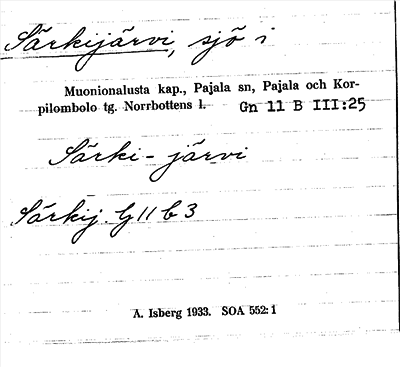 Särkijärvi, sjö i
Muonionalusta kap., Pajala sn, Pajala och Kor-
pilombolo tg. Norrbottens l. Gn 11 B III:25
Särki-järvi
Särkij. G 11 b 3
A. Isberg 1933. SOA 552:1